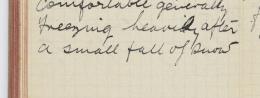 Comfortable generally
Freezing heavily after
a small fall of snow